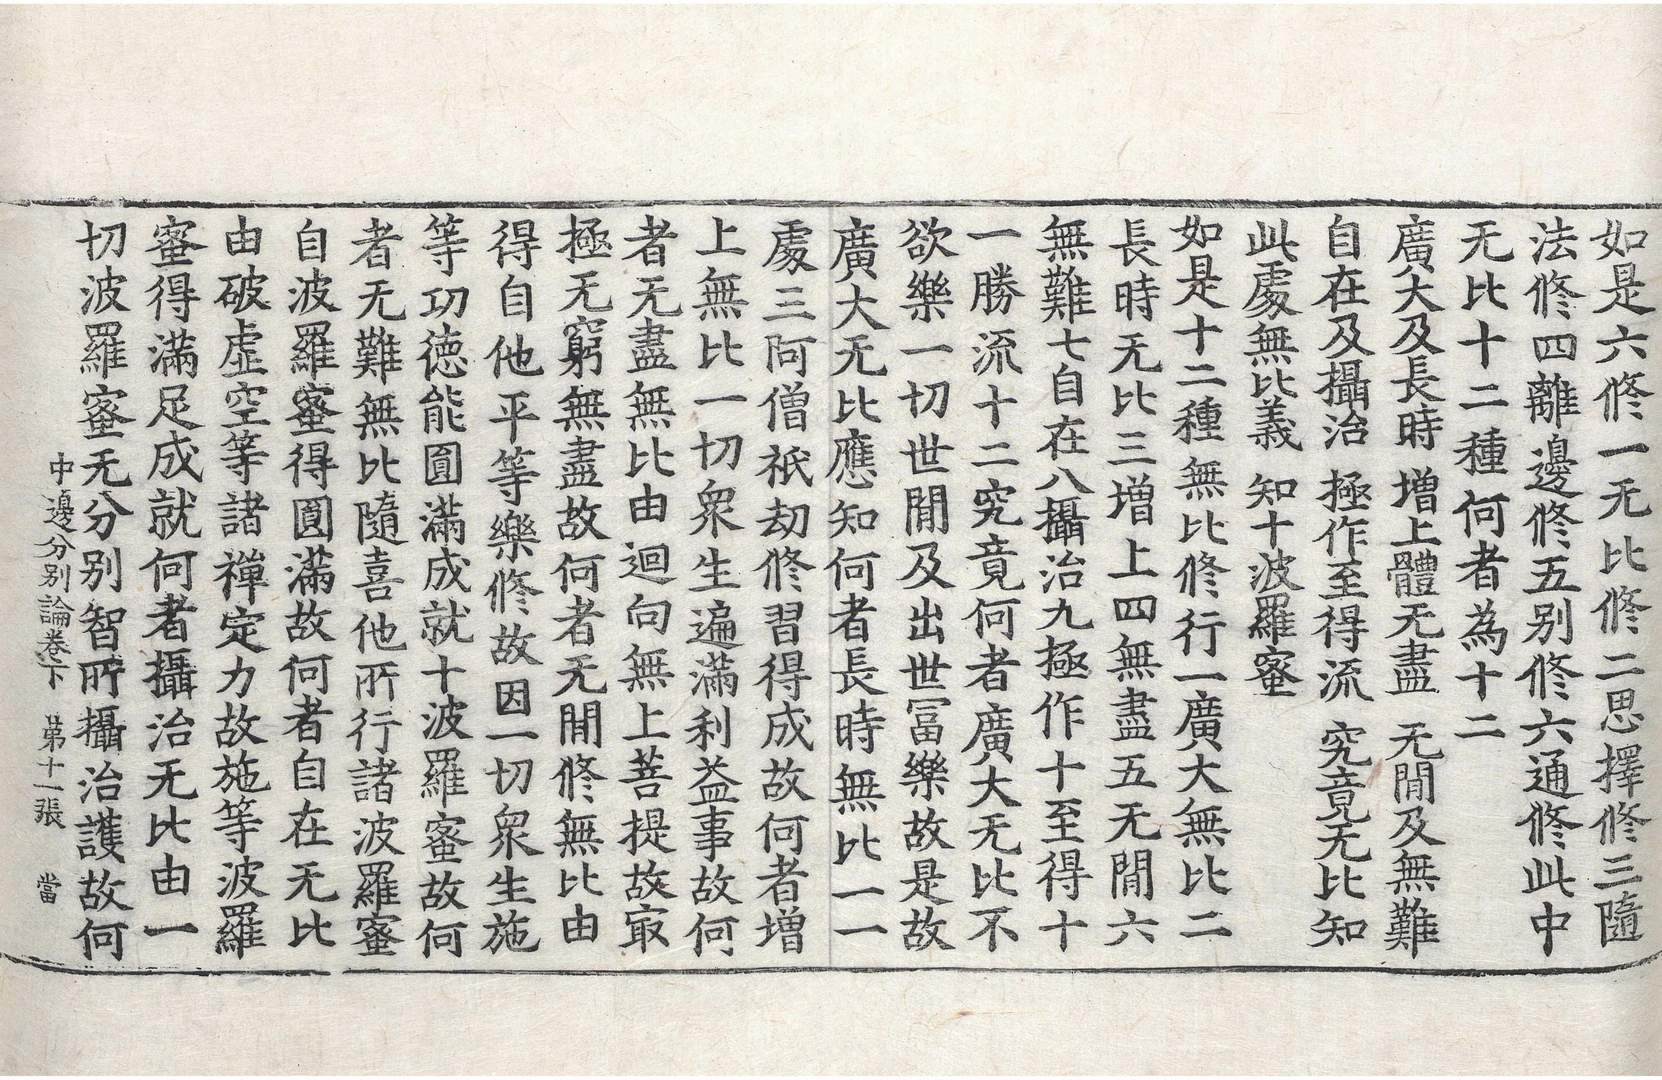 如是六修一无比修二思擇修三隨
法修四離邊修五别修六通修此中
无比十二種何者為十二
廣大及長時 增上體无盡 无閒及無難
自在及攝治 極作至得流 究竟无比知
此處無比義 知十波羅蜜
如是十二種無比修行一廣大無比二
長時无比三增上四無盡五无閒六
無難七自在八攝治九極作十至得十
一勝流十二究竟何者廣大无比不
欲樂一切世閒及出世冨樂故是故
廣大无比應知何者長時無比一一
處三阿僧祇劫修習得成故何者增
上無比一切衆生遍滿利益事故何
者无盡無比由迴向無上菩提故㝡
極无窮無盡故何者无閒修無比由
得自他平等樂修故因一切衆生施
等功德能圎滿成就十波羅蜜故何
者无難無比隨喜他所行諸波羅蜜
自波羅蜜得圎滿故何者自在无比
由破虛空等諸禪定力故施等波羅
蜜得滿足成就何者攝治无比由一
切波羅蜜无分别智所攝治護故何
中邊分别論卷下 第十一張 當